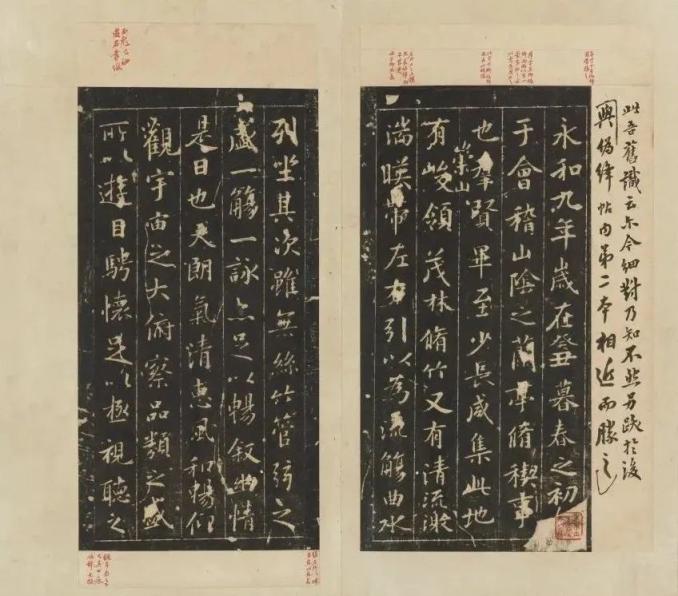 此吾舊識云尒今細對乃知不然另跋於後
與偽絳帖內第二本相近而勝之
永和九年歲在癸丑暮春之初
于會稽山陰之蘭亭脩稧事
也羣賢畢至少長咸集此地
有崇山峻領茂林脩竹又有清流激
湍暎帶左右引以為流觴曲水
列坐其次雖無絲竹管弦之
盛一觴一詠亦足以暢叙幽情
是日也天朗氣清惠風和暢仰
觀宇宙之大俯察品類之盛
所以遊目騁懷足以極視聽之